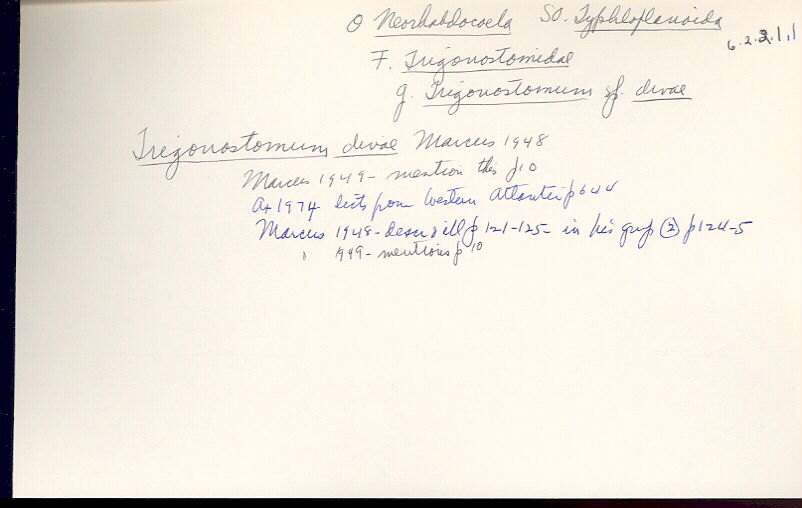 O Neorhabdocoela SO. Typhloplanoida
6.2.2.1.1
F. Trigonostomidae
g. Trigonostomum sp. divae
Trigonostomum divae Marcus 1948
Marcus 1949- mention this p10
Ax 1974 lists from Western Atlantic p644
Marcus 1948- descr & ill p 121-125- in his grp ② p124-5
" 1949- mentions p 10